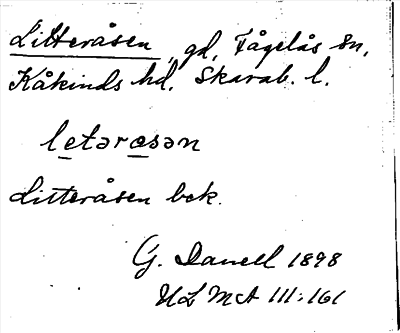 Litteråsen, gd, Fågelås sn,
Kåkinds hd, Skarab. l.
letəræsən
Litteråsen bek.
G. Danell 1898
ULMA 111:161